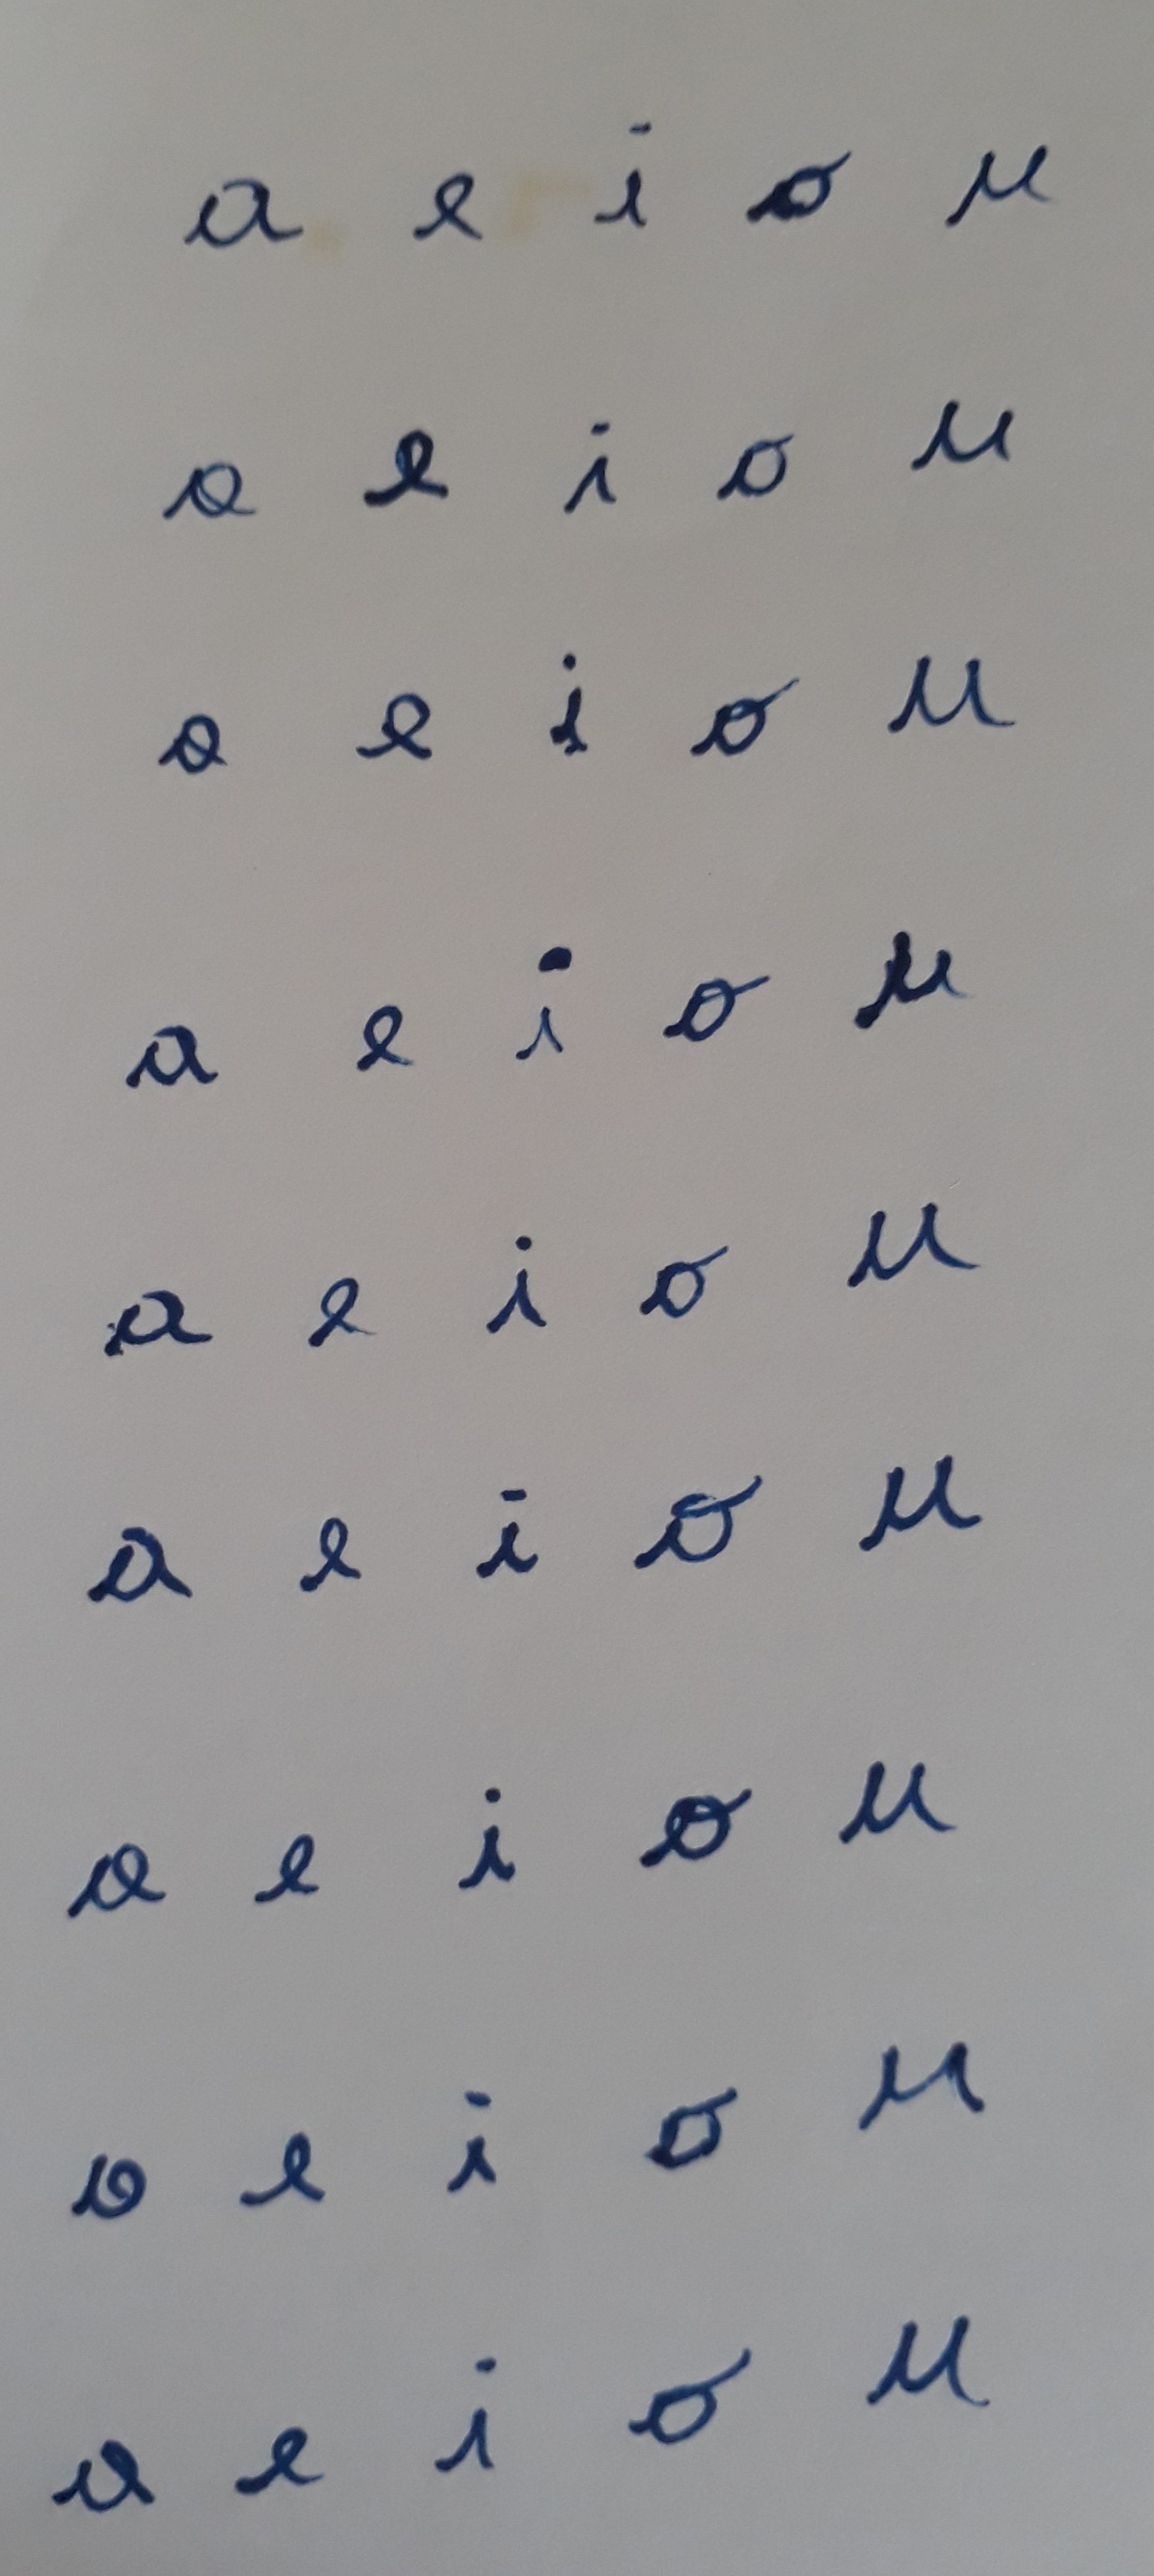 a e i o u
a e i o u
a e i o u
a e i o u
a e i o u
a e i o u
a e i o u
a e i o u
a e i o u